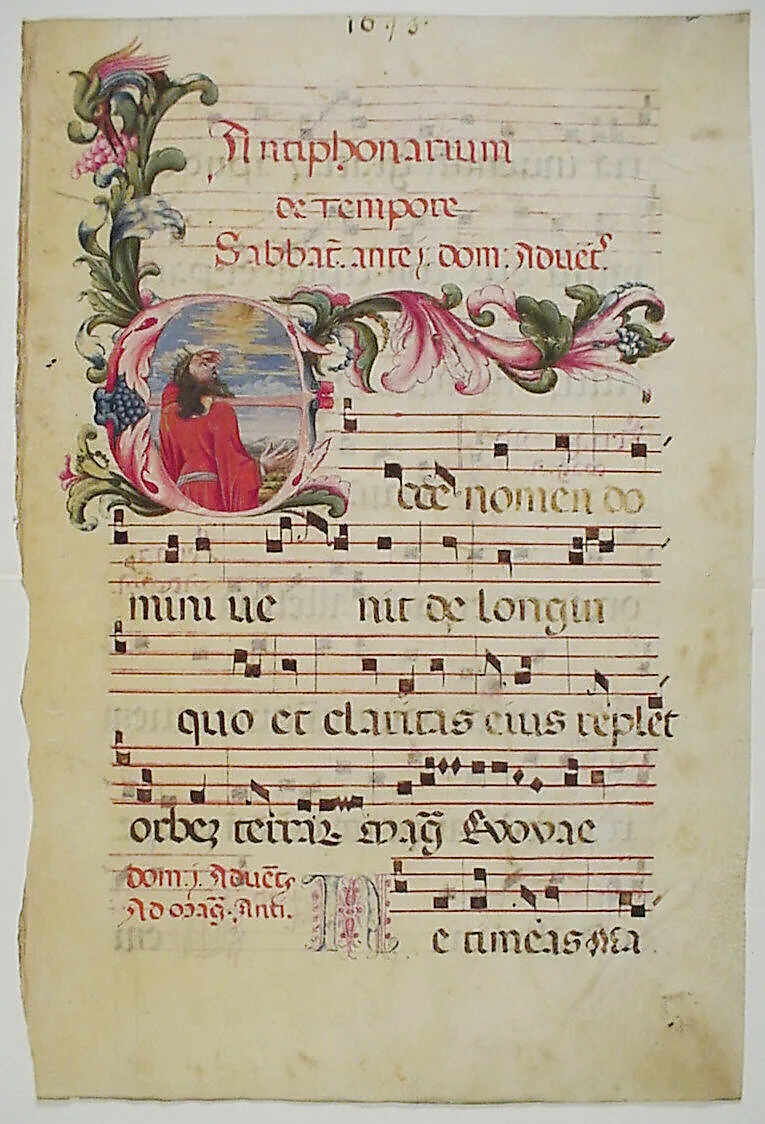 1693
Antiphonarium
de Tempore
Sabbat̄. ante j. dom: Aduēt⁹.
Ecce nomen do
mini ue nit de longin
quo et claritas eius replet
orbez terraꝝ Mag̃ Evovae
dom. j. Aduēt⁹
Ad Mag̃. Anti.
Ne timeas Ma